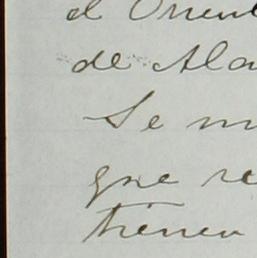 el Orient
de Ala
Se m
que re
tienen